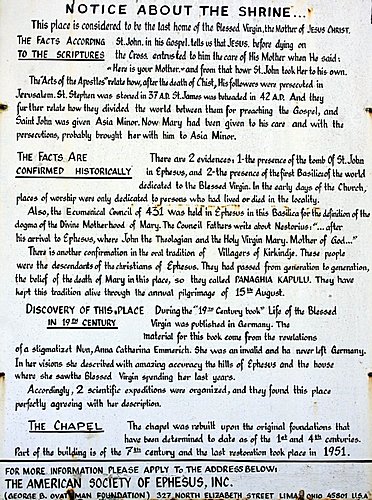 NOTICE ABOUT THE SHRINE...
This place is considered to be the last home of the Blessed Virgin, the Mother of JESUS CHRIST.
THE FACTS ACCORDING TO THE SCRIPTURES
St. John, in his Gospel, tells us that JESUS, before dying on
the Cross, entrusted to him the care of His Mother when He said:
-Here is your Mother.- and from that hour St. John took Her to his own.
The "Acts of the Apostles" relate how, after the death of Chist, His followers were persecuted in
Jerusalem. St. Stephen was stoned in 37 A.D. St. James was beheaded in 42 A.D. And they
further relate how they divided the world between them for preaching the Gospel, and
Saint John was given Asia Minor. Now Mary had been given to his care and with the
persecutions, probably brought her with him to Asia Minor.
THE FACTS ARE CONFIRMED HISTORICALLY
There are 2 evidences: 1-the presence of the tomb Of St. John
in Ephesus, and 2-the presence of the first Basilica of the world
dedicated to the Blessed Virgin. In the early days of the Church,
places of worship were only dedicated to persons who had lived or died in the locality.
Also, the Ecumenical Council of 431 was held in Ephesus in this Basilica for the definition of the
dogma of the Divine Motherhood of Mary. The Council Fathers write about Nestorius: "... after
his arrival to Ephesus, where John the Theologian and the Holy Virgin Mary, Mother of God..."
There is another confirmation in the oral tradition of Villagers of Kirkindje. These people
were the descendants of the christians of Ephesus. They had passed from generation to generation,
the belief of the death of Mary in this place, so they called PANAGHIA KAPULU. They have
kept this tradition alive through the annual pilgrimage of 15th August.
DISCOVERY OF THIS PLACE IN 19TH CENTURY
During the "19th Century book" Life of the Blessed
Virgin was published in Germany. The
material for this book come from the revelations
of a stigmatizet Nun, Anna Catherina Emmerich. She was an invalid and ha never left Germany.
In her visions she described with amazing accuracy the hills of Ephesus and the house
where she saw the Blessed Virgin spending her last years.
Accordingly, 2 scientific expeditions were organized, and they found this place
perfectly agreeing with her description.
THE CHAPEL
The chapel was rebuilt upon the original foundations that
have been determined to date as of the 1st and 4th centuries.
Part of the building is of the 7th century and the last restoration took place in 1951.
FOR MORE INFORMATION PLEASE APPLY TO THE ADDRESS BELOW:
THE AMERICAN SOCIETY OF EPHESUS, INC.
(GEORGE B. FOUNDATION) 327 NORTH ELIZABETH STREET LIMA, OHIO 45801 U.S.A.